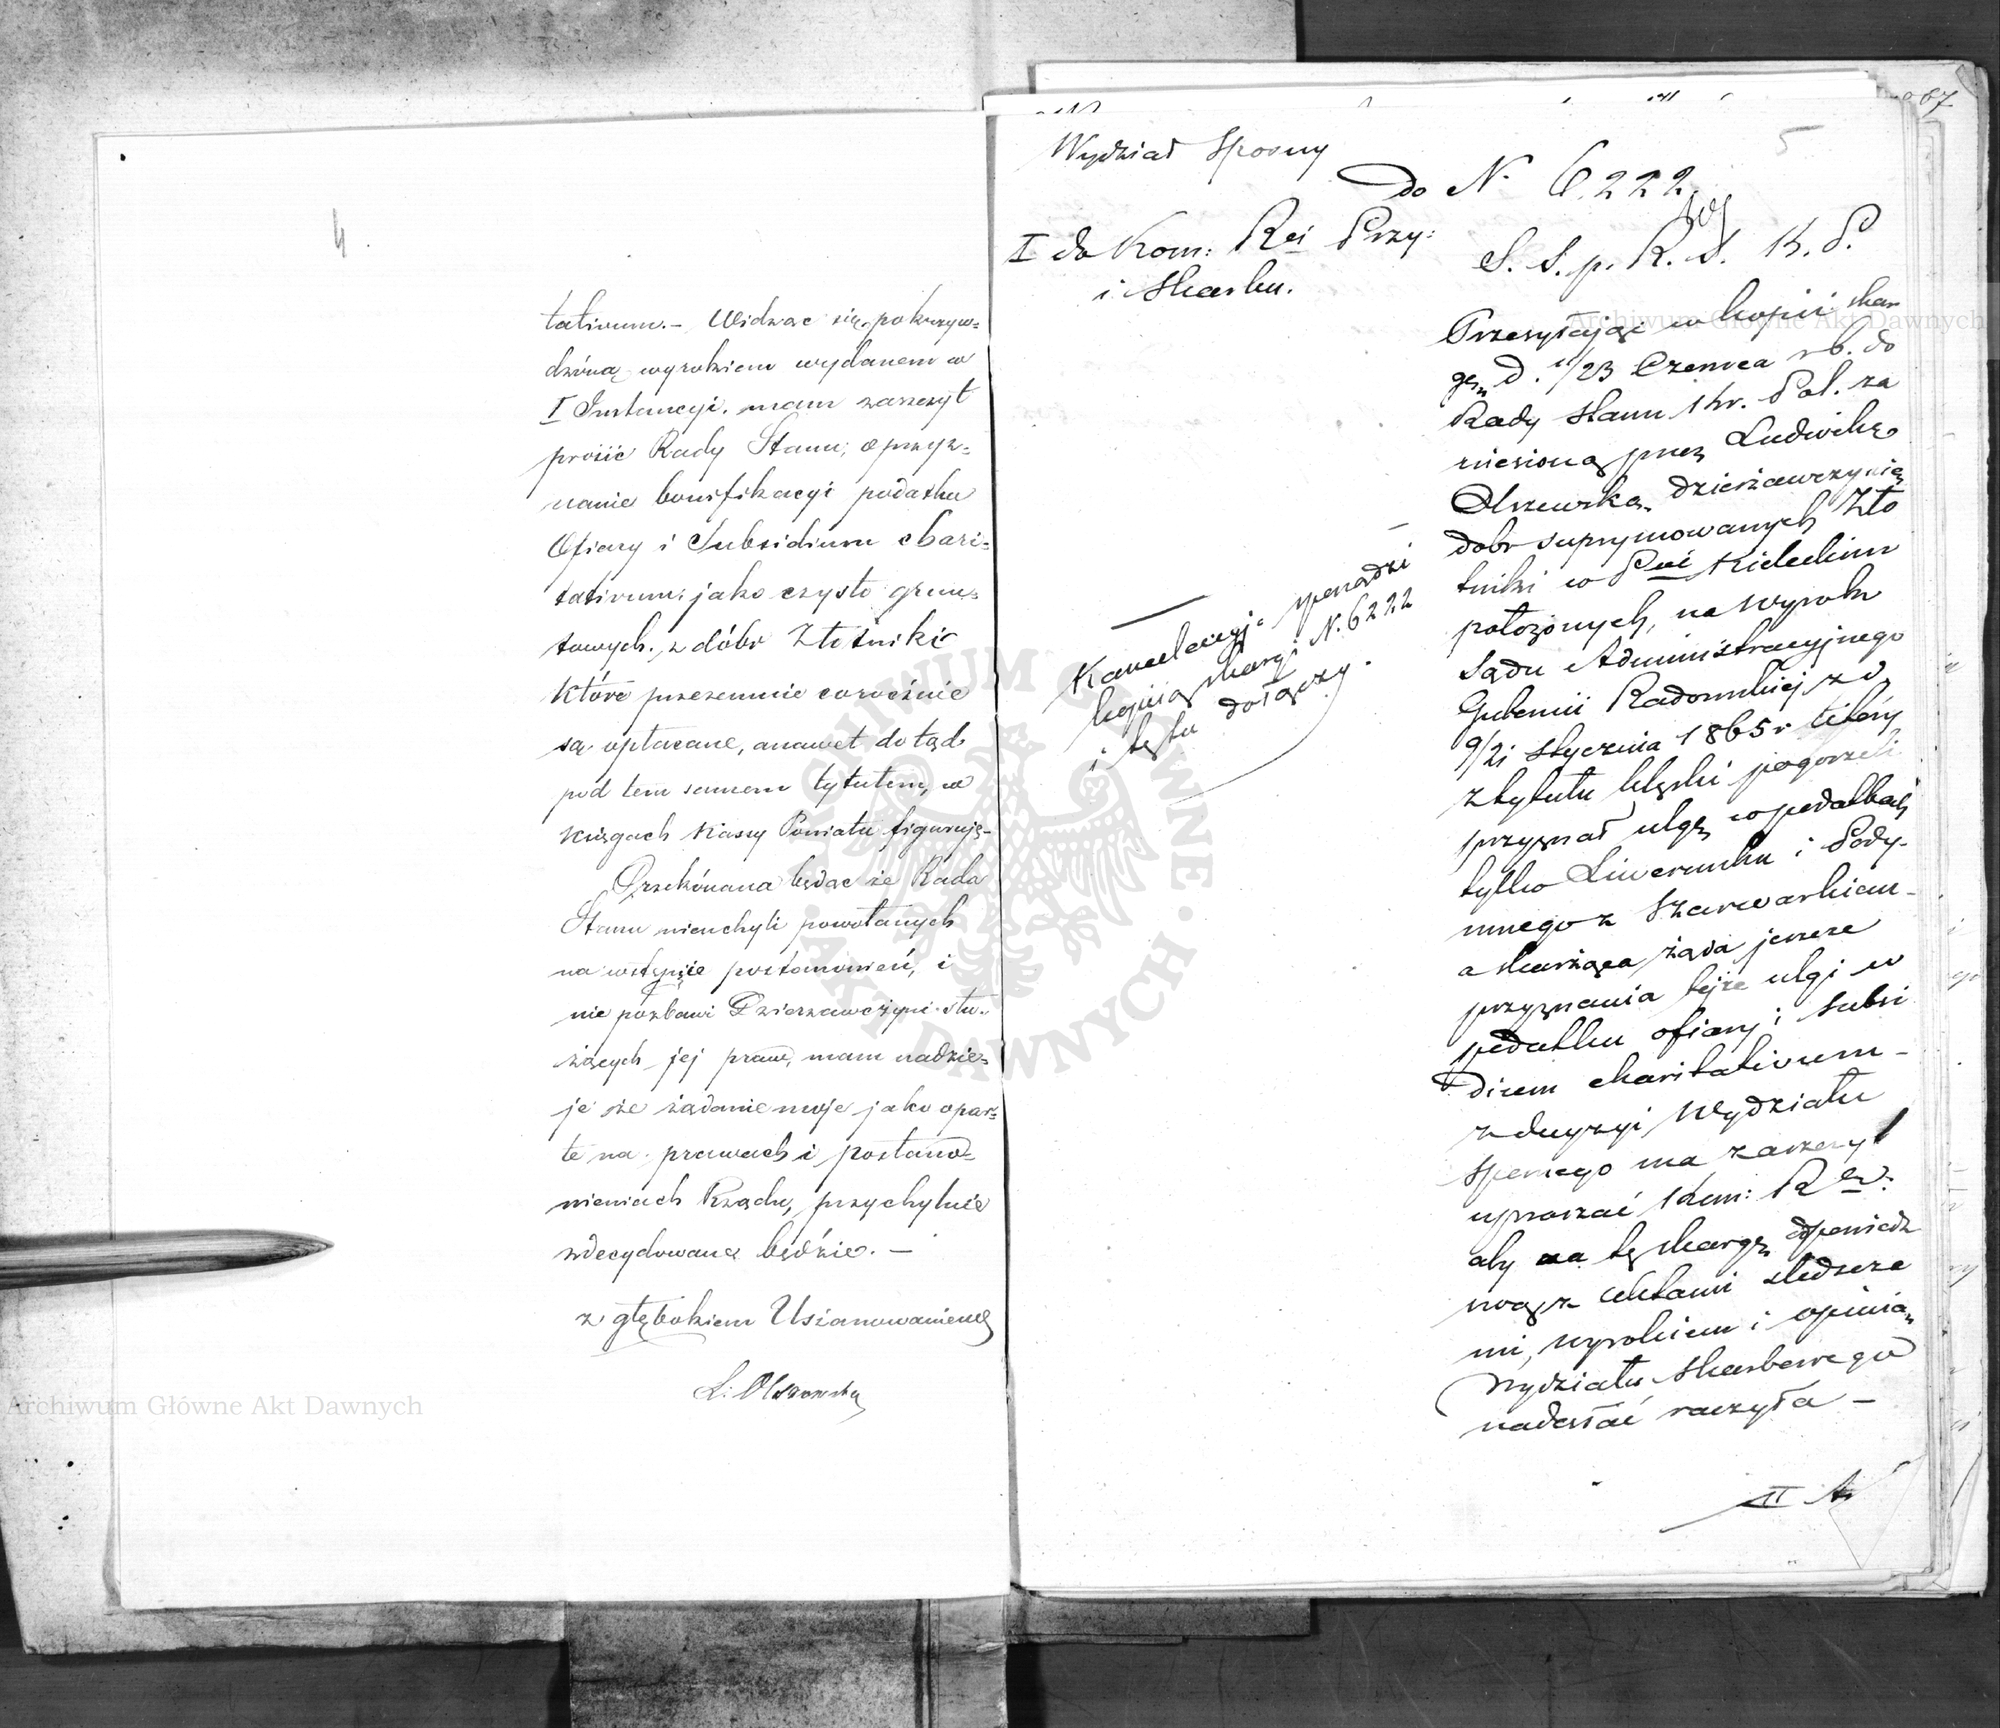 4
tativum. – Widząc się pokrzyw=
dzóną wyrokiem wydanem w
I Instancyi. mam zaszczyt
prosić Rady Stanu, o przyz=
nanie bonifikacyi podatku
Ofiary i Subsidium chari=
tativum, jako czysto grun=
towych, z dóbr Złotniki
które przezemnie corocznie
są opłacane, a nawet dotąd
pod tem samem tytułem, w
Księgach Kassy Powiatu figurują –
Przekónana będąc że Rada
Stanu nieuchyli powołanych
na wstępie postanowień, i
nie pozbawi Dzierzawczyni słu=
żących jej praw, mam nadzie=
je że żądanie moje jako opar=
te na prawach i postano=
wieniach Rządu, przychylnie
zdecydowane będzie. –
z głębokiem Uszanowaniem
L. Olszewska
67
5
Wydział Sporny
do N. 6.222
I do Kom: Rei Przy:
i Skarbu.
S. S. p. R. S. K. P.
Przesyłając w kopii skar
gę d. 11/23 Czerwca rb. do
Rady Stanu Kr. Pol. za
niesioną przez Ludwikę
Olszewską, dzierżawczynię
dóbr suprymowanych Zło
tniki w Pcie Kieleckim
położonych, na Wyrok
Sądu Administracyjnego
Gubernii Radomskiej z d.
9/21 Stycznia 1865 r który
z tytułu klęski pogorzeli
przyznał ulgę w podatkach
tylko Liwerunku i Pody-
mnego z Szarwarkiem –
a skarżąca żąda jeszcze
przyznania tejże ulgi w
podatku ofiary i Subsi
dium charitativum –
z decyzyi Wydziału
Spornego ma zaszczyt
upraszać Kom: R.
aby na tę skargę odpowiedz
swą z aktami śledcze
mi, wyrokiem i opinią
Wydziału Skarbowego
nadesłać raczyła –
Kancelaryja sporządzi
kopiją skargi N. 6222
i tę tu dołączy.
II
Archiwum Główne Akt Dawnych
Archiwum Główne Akt Dawnych
ARCHIWUM GŁÓWNE · AKT DAWNYCH ·